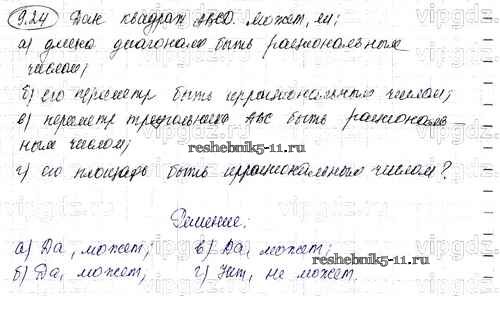 9.24 Дан квадрат ABCD. Может ли;
а) длина диагонали быть рациональным
числом;
б) его периметр быть иррациональным числом;
в) периметр треугольника ABC быть рациональ-
ным числом;
г) его площадь быть иррациональным числом?
reshebnik5-11.ru
Решение:
а) Да, может; в) Да, может;
reshebnik5-11.ru
б) Да, может; г) Нет, не может.